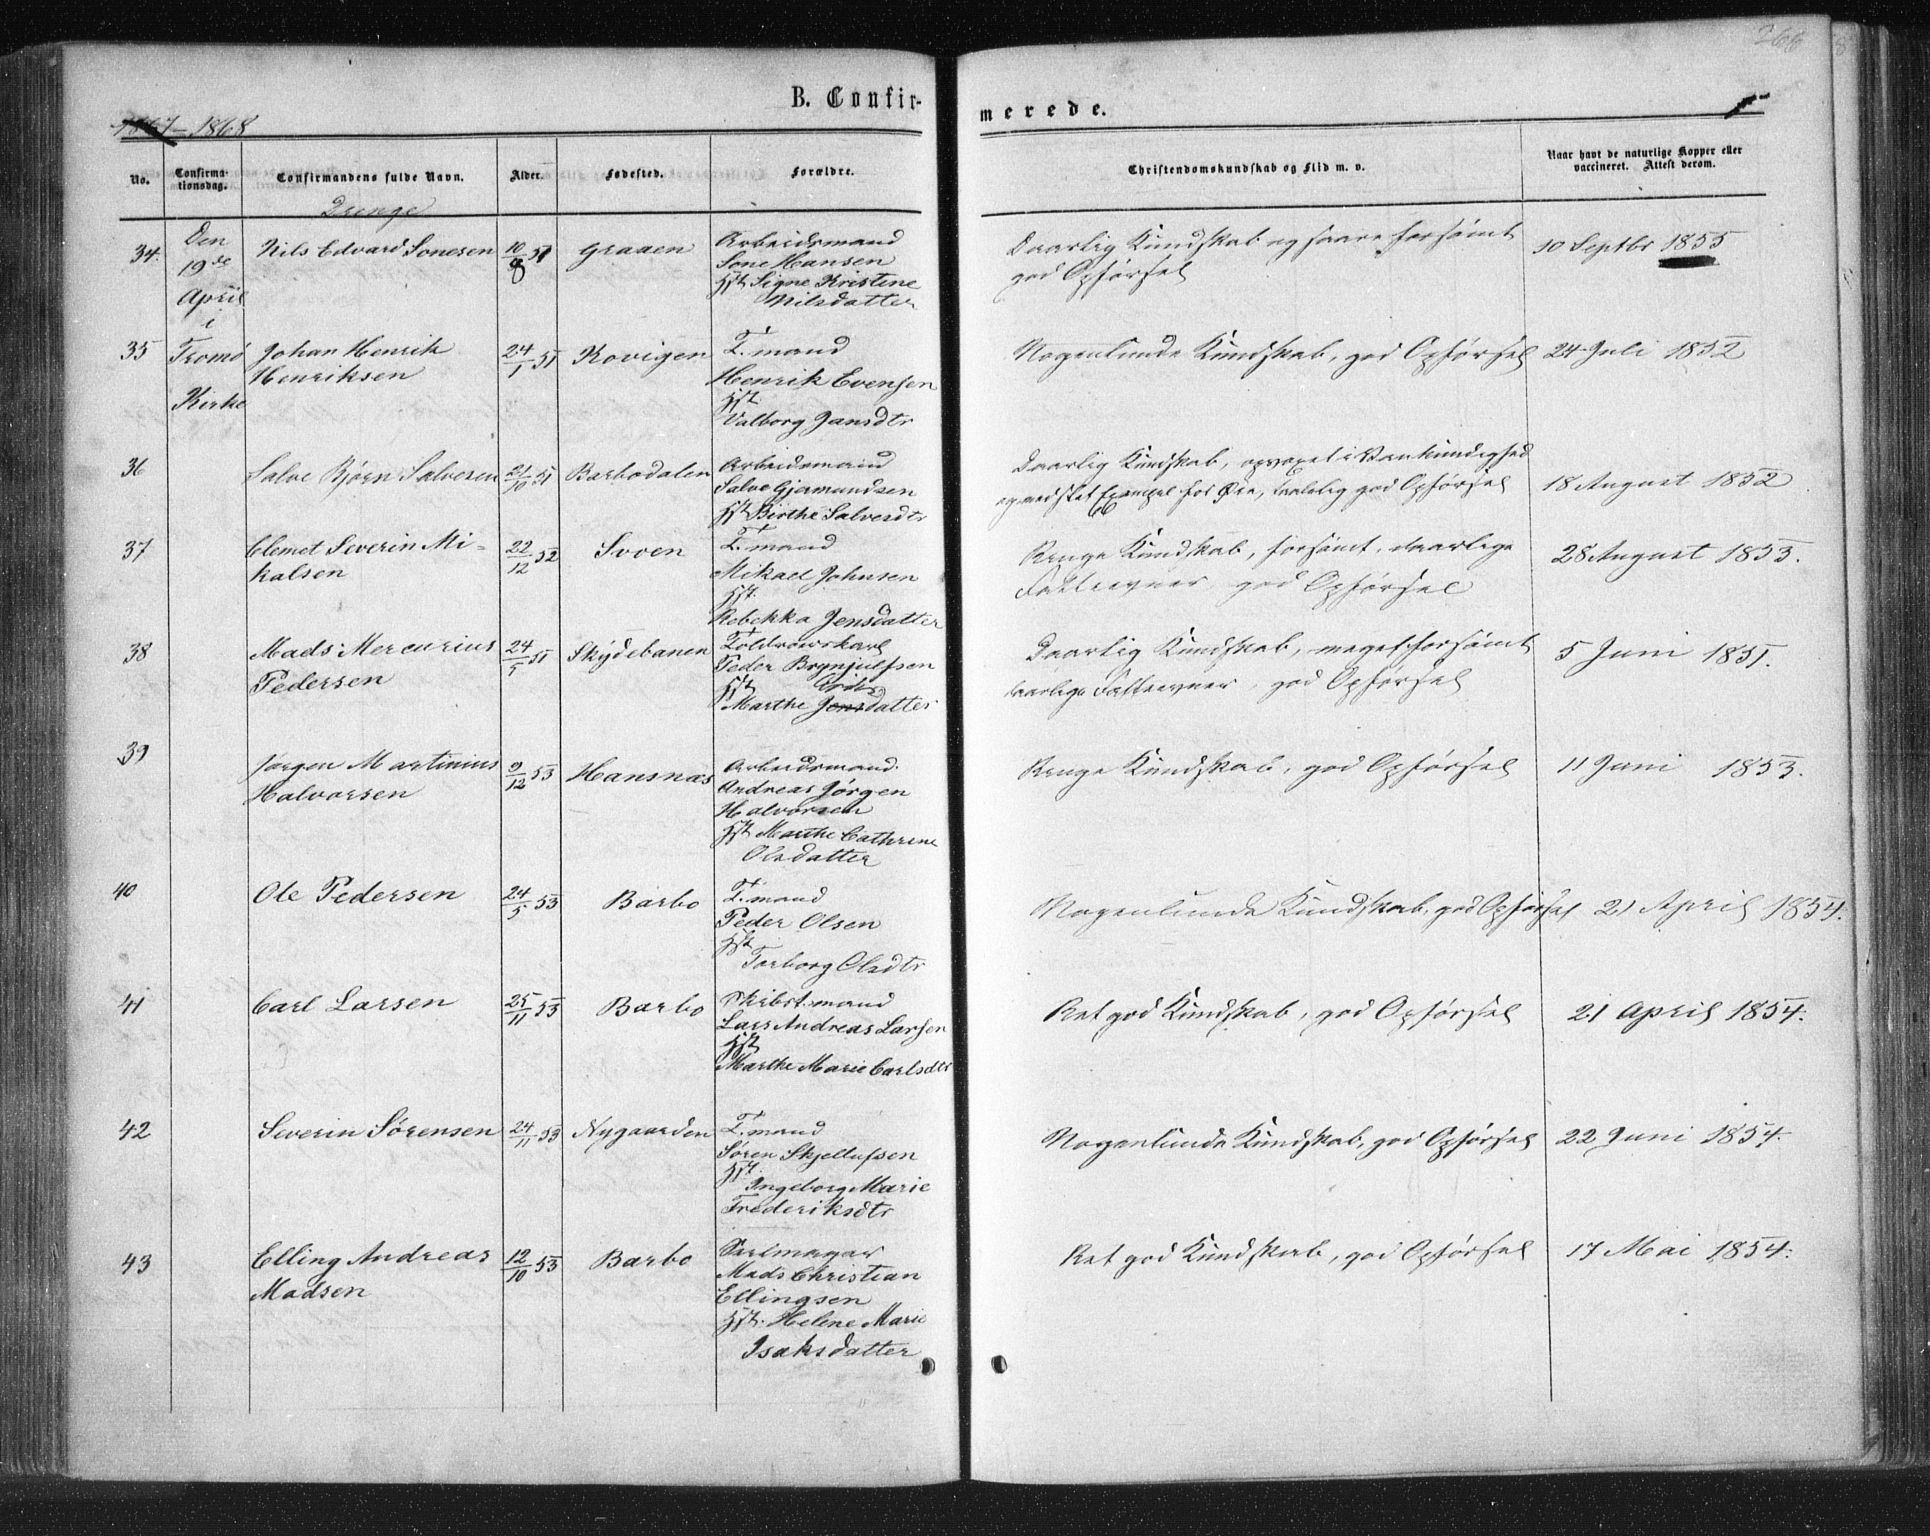 268
B. Confir-
merede.
1867-1868
No.
Confirma-
tionsdag.
Confirmandens fulde Navn.
Alder.
Fødested.
Forældre.
Christendomskundskab og Flid m. v.
Naar havt de naturlige Kopper eller
vaccineret. Attest derom.
Drenge
34.
Den
19de
April
i
Tromø
Kirke
Nils Edvard Sonesen
10/8 51
Graaen
Arbeidsmand
Sone Hansen
Hst Signe Kristine
Nilsdatter
Daarlig Kundskab og saare forsømt
god Opførsel
10 Septbr 1855
35
Johan Henrik
Henriksen
24/1 51
Kovigen
T. mand
Henrik Evensen
Hst.
Valborg Jansdtr
Nogenlunde Kundskab, god Opførsel
24 Juli 1852
36
Salve Bjørn Salvesen
21/10 51
Barbodalen
Arbeidsmand
Salve Gjermundsen
Hst Birthe Salvesdtr
Daarlig Kundskab, opvoxet i Vankundighed
og med slet Exempel for Øie, taalelig god Opførsel
18 August 1852
37
Clemet Severin Mi-
kalsen
22/12 52
Svoen
T. mand
Mikael Johnsen
Hst.
Rebekka Jensdatter
Ringe Kundskab, forsømt, daarlige
Fatteevner, god Opførsel
28 August 1853.
38
Mads Mercurius
Pedersen
24/5 51
Skydebanen
Toldrowskarl
Peder Brynjulfsen
Hst
Marthe Jensdatter
Daarlig Kundskab, meget forsømt
daarlige Fatteevner, god Opførsel
5 Juni 1851.
39
Jørgen Martinius
Halvorsen
9/12 53
Hansnæs
Arbeidsmand.
Andreas Jørgen
Halvorsen
Hst Marthe Cathrine
Olsdatter
Ringe Kundskab, god Opførsel
11 Juni 1853.
40
Ole Pedersen
24/5 53
Barbo
T. mand
Peder Olsen
Hst
Torborg Olsdtr
Nogenlunde Kundskab, god Opførsel
21 April 1854.
41
Carl Larsen
25/11 53
Barbo
Skibst. mand
Lars Andreas Larsen
Hst
Marthe Marie Carlsdtr
Ret god Kundskab, god Opførsel
21 April 1854.
42
Severin Sørensen
24/11 53
Nygaarden
T. mand
Søren Skjellufsen
Hst.
Ingeborg Marie
Frederiksdtr
Nogenlunde Kundskab, god Opførsel
22 Juni 1854.
43
Elling Andreas
Madsen
12/10 53
Barbo
Seilmager
Mads Christian
Ellingsen
Hst. Helene Marie
Isaksdatter
Ret god Kundskab, god Opførsel
17 Mai 1854.